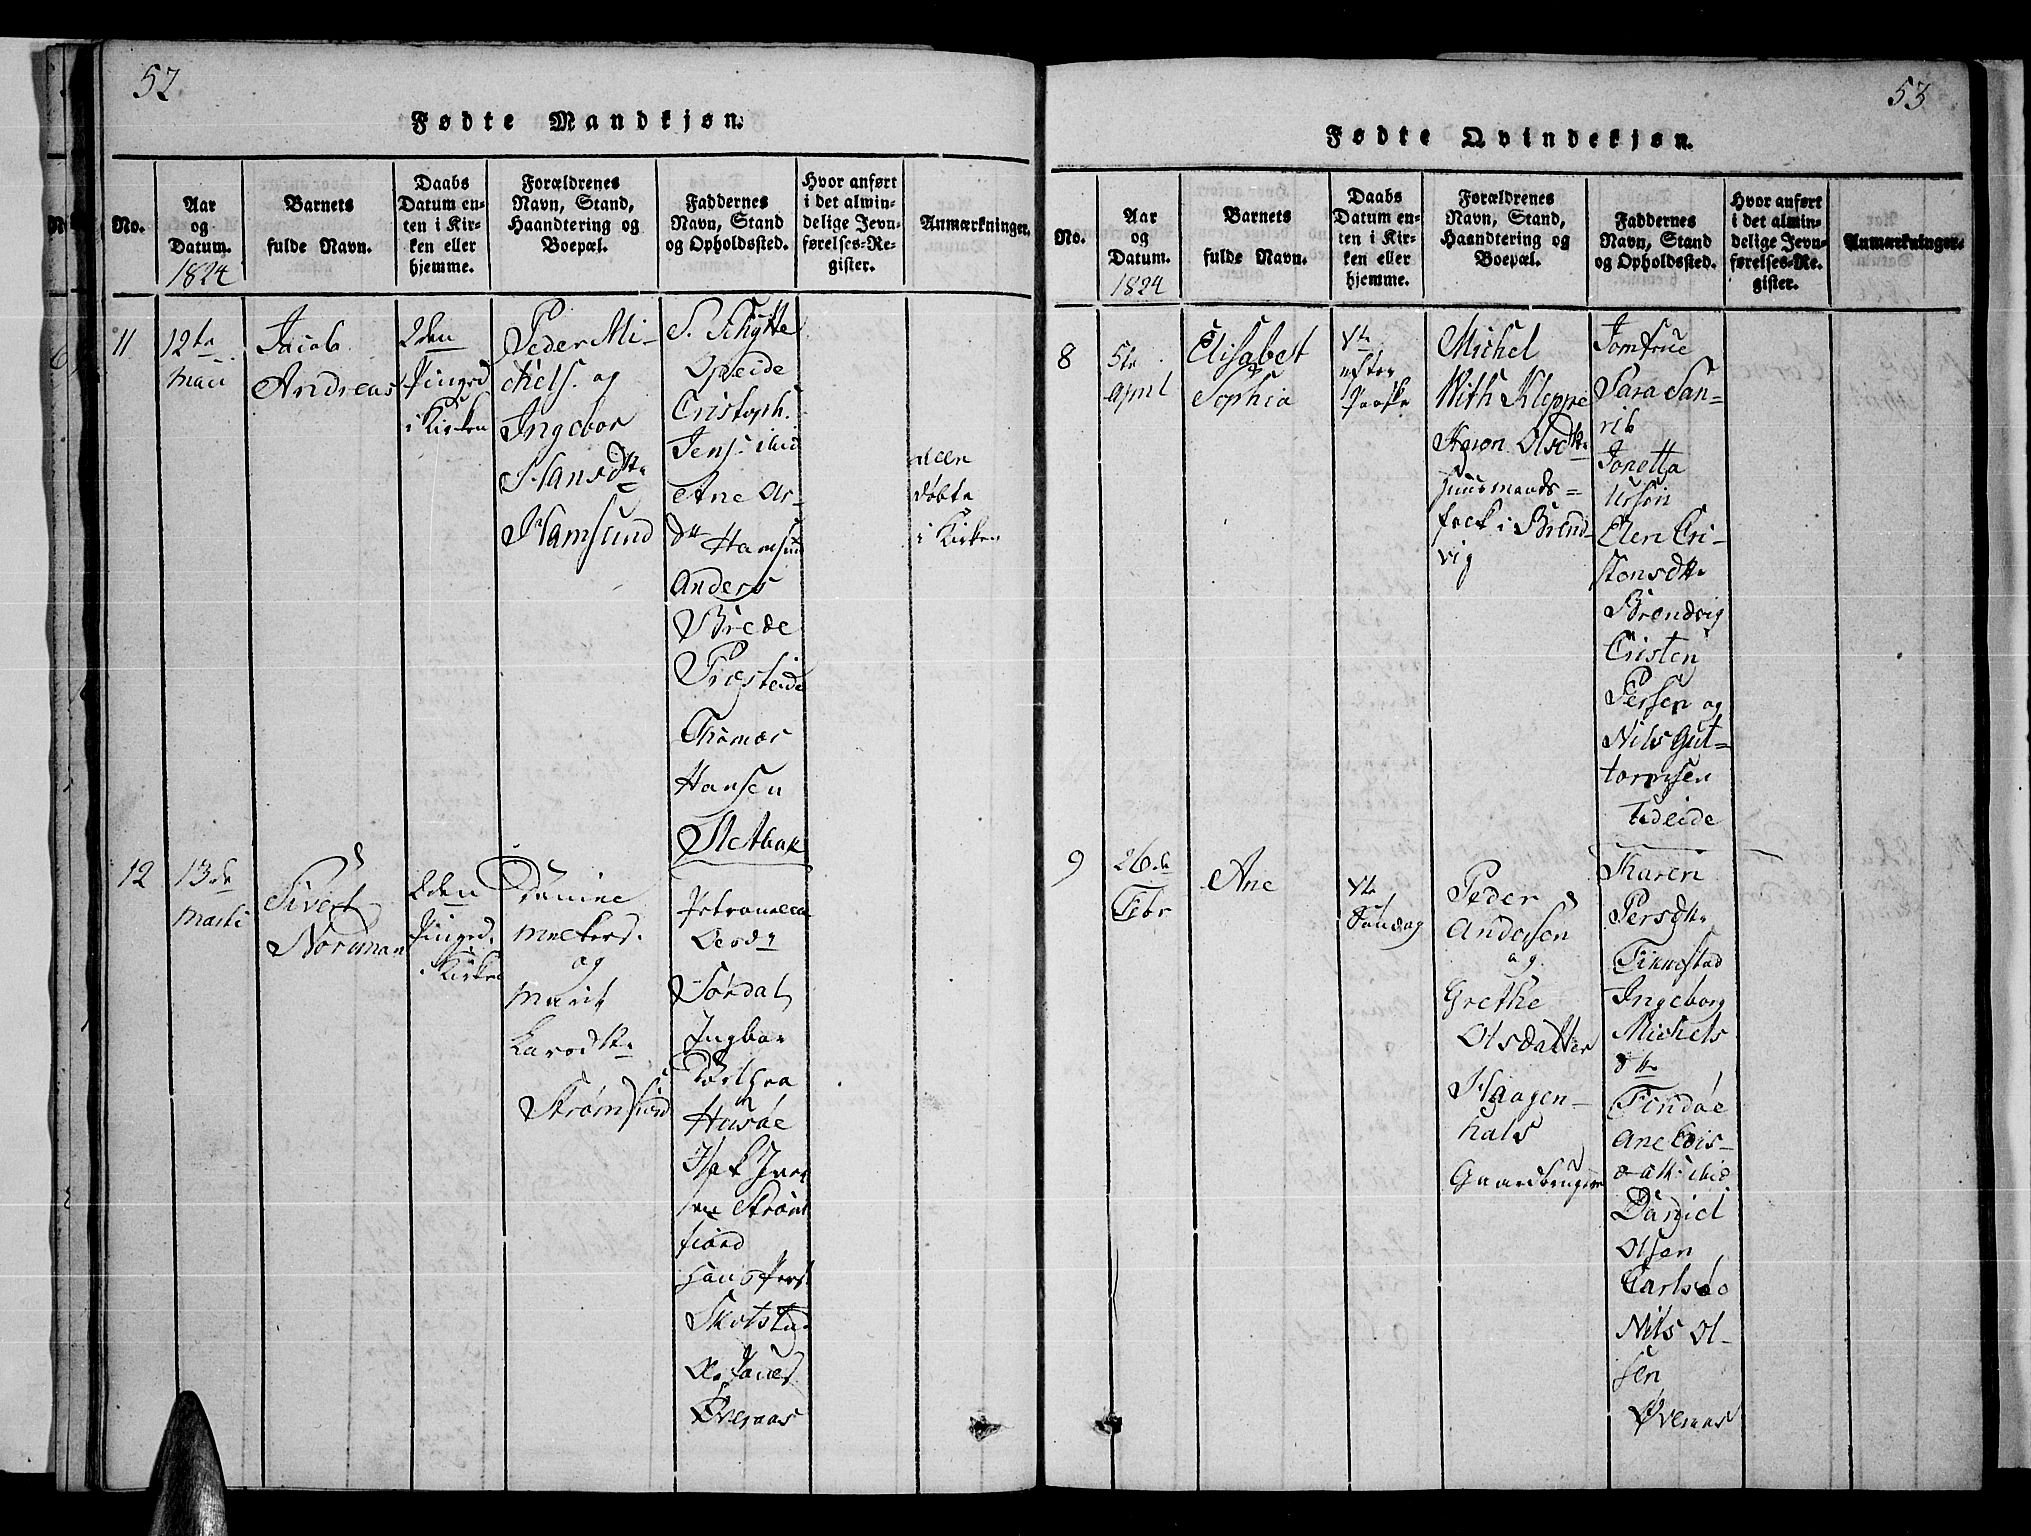 52.
Fødte Mandkjøn.
No.
Aar
og
Datum.
1824
Barnets
fulde Navn.
Daabs
Datum en-
ten i Kir-
ken eller
hjemme.
Forældrenes
Navn, Stand,
Haandtering og
Boepæl.
Faddernes
Navn, Stand
og Opholdssted.
Hvor anført
i det almin-
delige Jevn-
førelses-Re-
gister.
Anmærkninger.
11
12te
Maii
Jacob
Andreas
2den
Pinsed
i Kirken
Peder Mi-
chels. og
Ingebor
Hansdtr
Hamsund
S. Schytte
Opeide
Cristoph.
Jens. ibid
Ane
dtr Hamsund
Anders
Brede
Præsteide
Thomas
Hansen
døbte
i Kirken
12
13de
Marti
Sivert
Nordman
2den
Pinsed.
i Kirken
og
Marit
Larsdtr
Strømsund
Sørdal
Ingbor
Husøe
Strøm
fiord
Hans Pers.
Skotstad
Øvernas
53
Fødte Qvindekjøn.
No.
Aar
og
Datum.
1824
Barnets
fulde Navn.
Daabs
Datum en-
ten i Kir-
ken eller
hjemme.
Forældrenes
Navn, Stand,
Haandtering og
Boepæl.
Faddernes
Navn, Stand
og Opholdssted.
Hvor anført
i det almin-
delige Jevn-
førelses-Re-
gister.
Anmærkninger.
8
5te
April
Elisabet
Sophia
efter
Paaske
Michel
With Kloppe
Olsdtr
Huusmands=
folk i Brend-
vig
Jomfrue
Sara San-
Jonetta
Elen Cri-
stensdtr
Brendvig
Cristen
Persen og
Nils Gut-
tormsen
9
26de
Febr
Ane
Søndag
Peder
Andersen
og
Grethe
Olsdatter
Haagen-
hals
Gaardbruger
Karen
Persdtr
Finnestad
Ingeborg
Michels
dtr
Findøe
Ane
datt. ibid
Daniel
Olsen
Carlsøe
Nils Ol-
sen
Øvernas